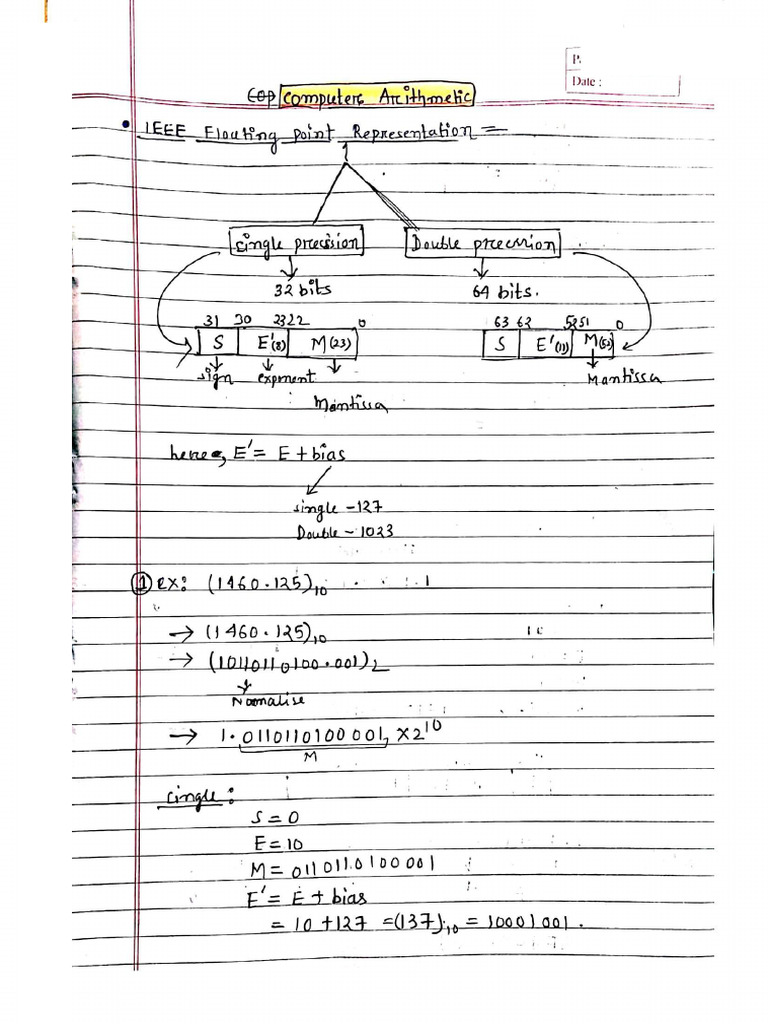 P.
Date :
COP Computers Arithmetic
• IEEE Floating point Representation =
single precision Double precision
32 bits 64 bits.
31 30 23 22 0 63 62 52 51 0
S E'(8) M(23) S E'(11) M(52)
sign exponent Mantissa
Mantissa
here, E' = E + bias
single - 127
Double - 1023
① ex: (1460.125)₁₀
→ (1460.125)₁₀
→ (10110110100.001)₂
Normalise
→ 1.0110110100001 × 2¹⁰
M
single:
S = 0
E = 10
M = 0110110100001
E' = E + bias
= 10 + 127 = (137)₁₀ = 10001001.